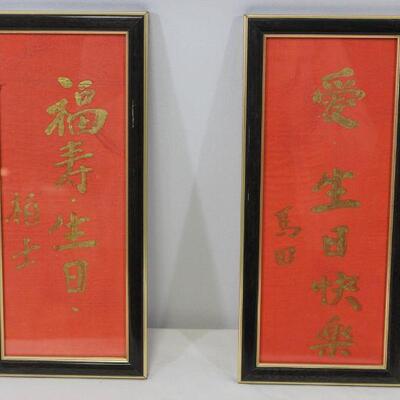 愛
生日快樂
馬田
福壽·生日·
福士